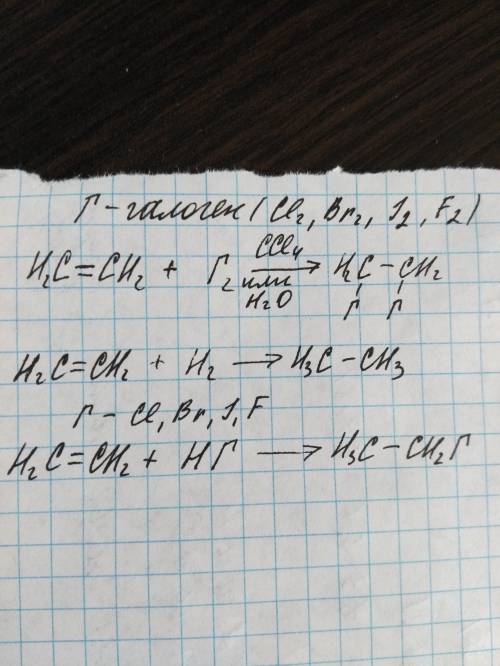 Г - галоген (Cl₂, Br₂, J₂, F₂)
H₂C=CH₂ + Г₂ CCl₄ или H₂O → H₂C-CH₂
Г Г
H₂C=CH₂ + H₂ → H₃C-CH₃
Г - Cl, Br, J, F
H₂C=CH₂ + HГ → H₃C-CH₂Г